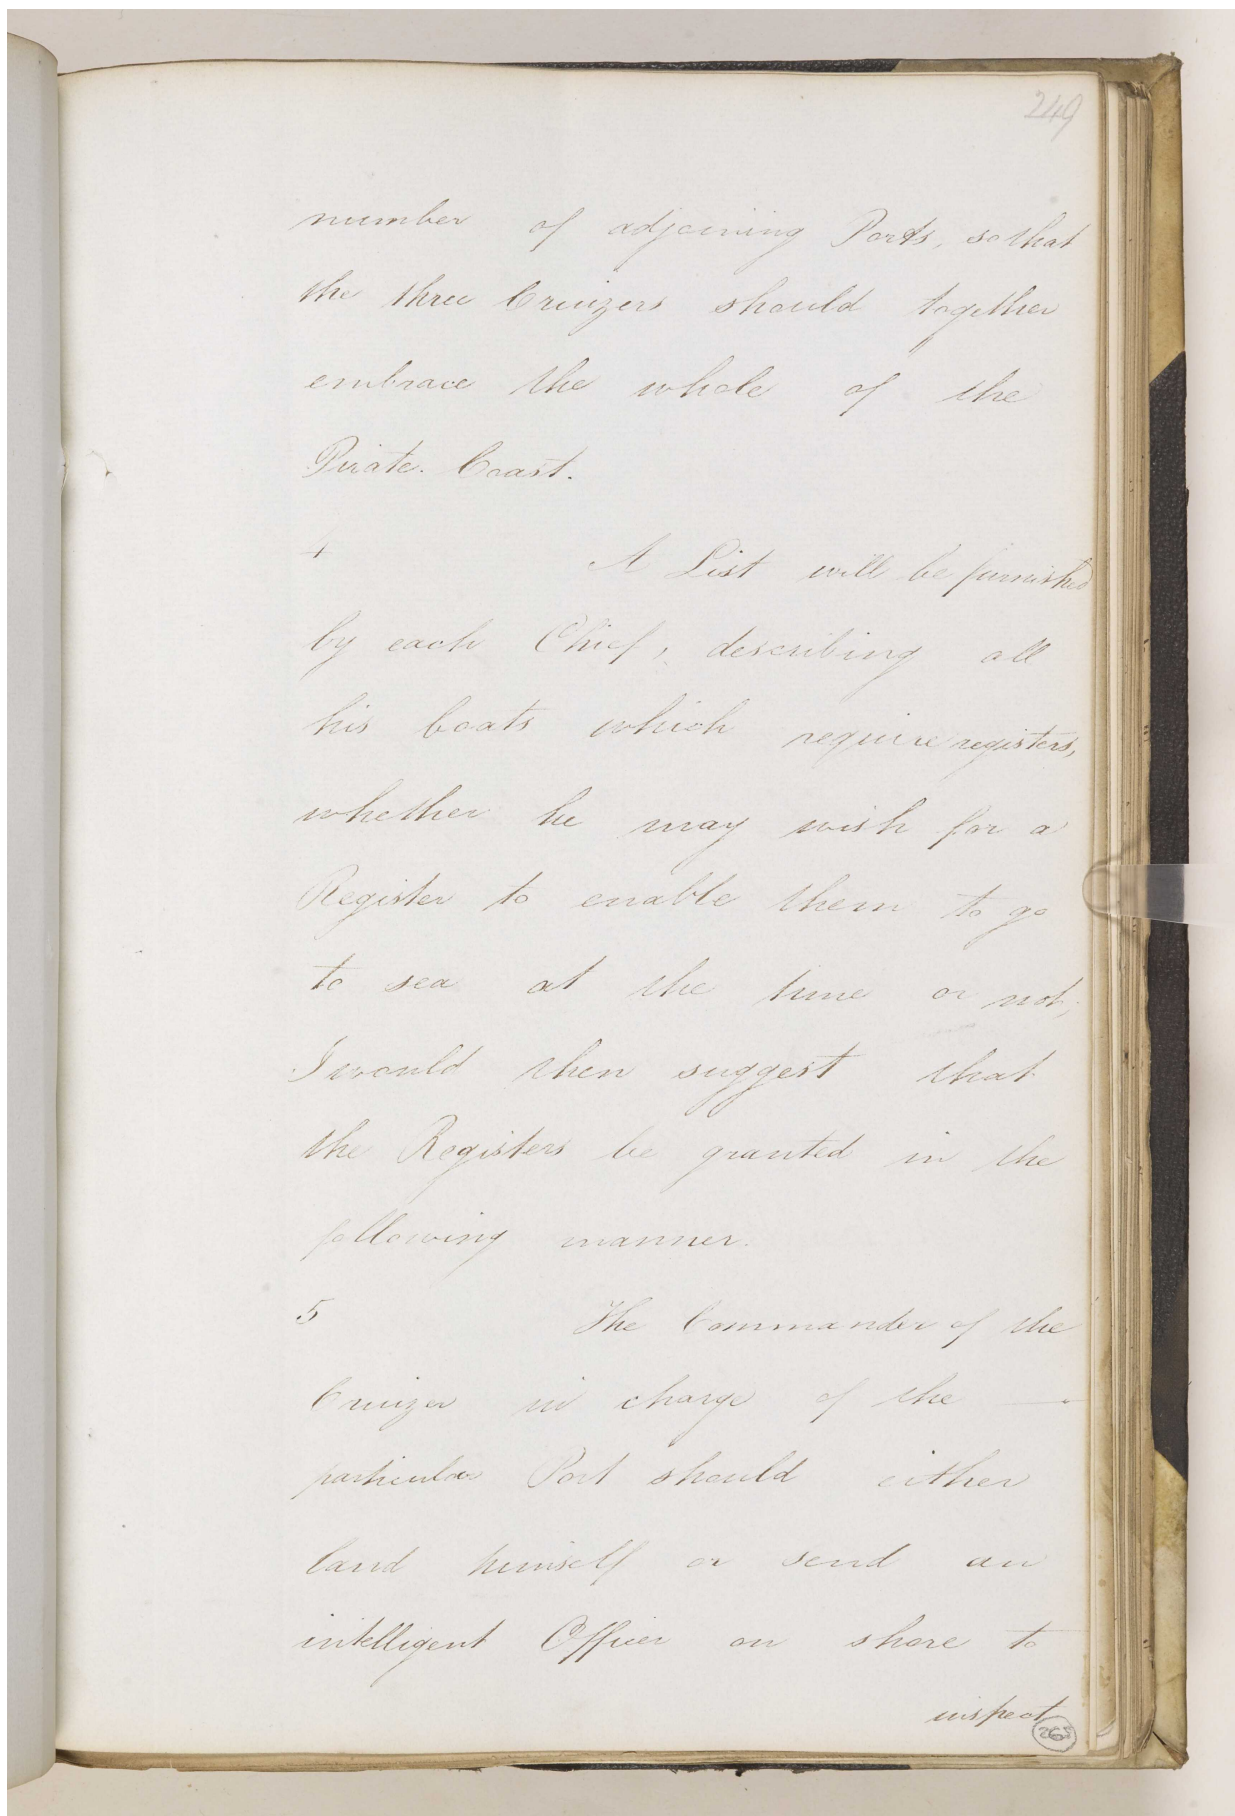 249
number of adjoining Ports, so that
the three Cruizers should together
embrace the whole of the
Pirate. Coast.
4 A List will be furnished
by each Chief, describing all
his boats which require registers,
whether he may wish for a
Register to enable them to go
to sea at the time or not;
I would then suggest that
the Registers be granted in the
following manner.
5 The Commander of the
Cruizer in charge of the
particular Port should either
land himself or send an
intelligent Officer on shore to
inspect